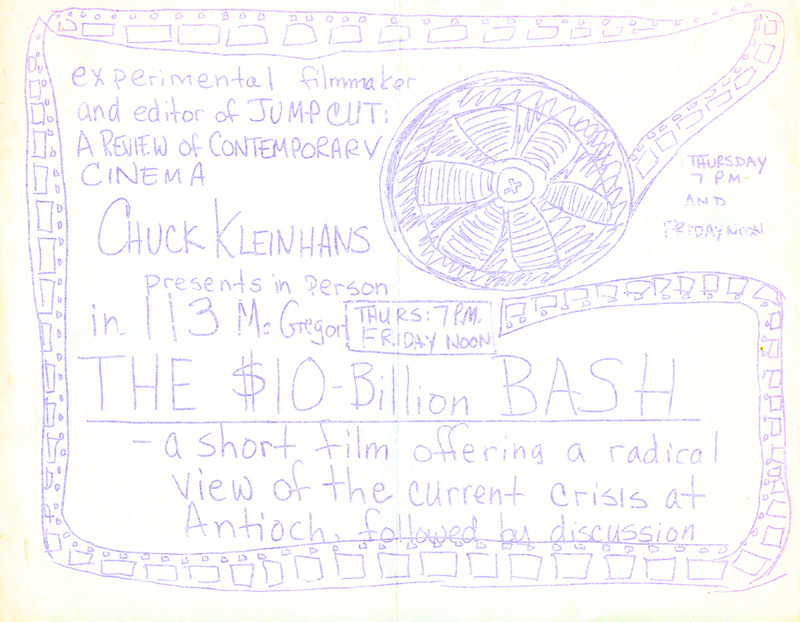 experimental filmmaker
and editor of JUMP CUT:
A REVIEW OF CONTEMPORARY
CINEMA
CHUCK KLEINHANS
presents in person
in 113 McGregor
THURS: 7 P.M.
FRIDAY NOON
THURSDAY
7 PM
AND
FRIDAY NOON
THE $10-Billion BASH
- a short film offering a radical
view of the current crisis at
Antioch, followed by discussion